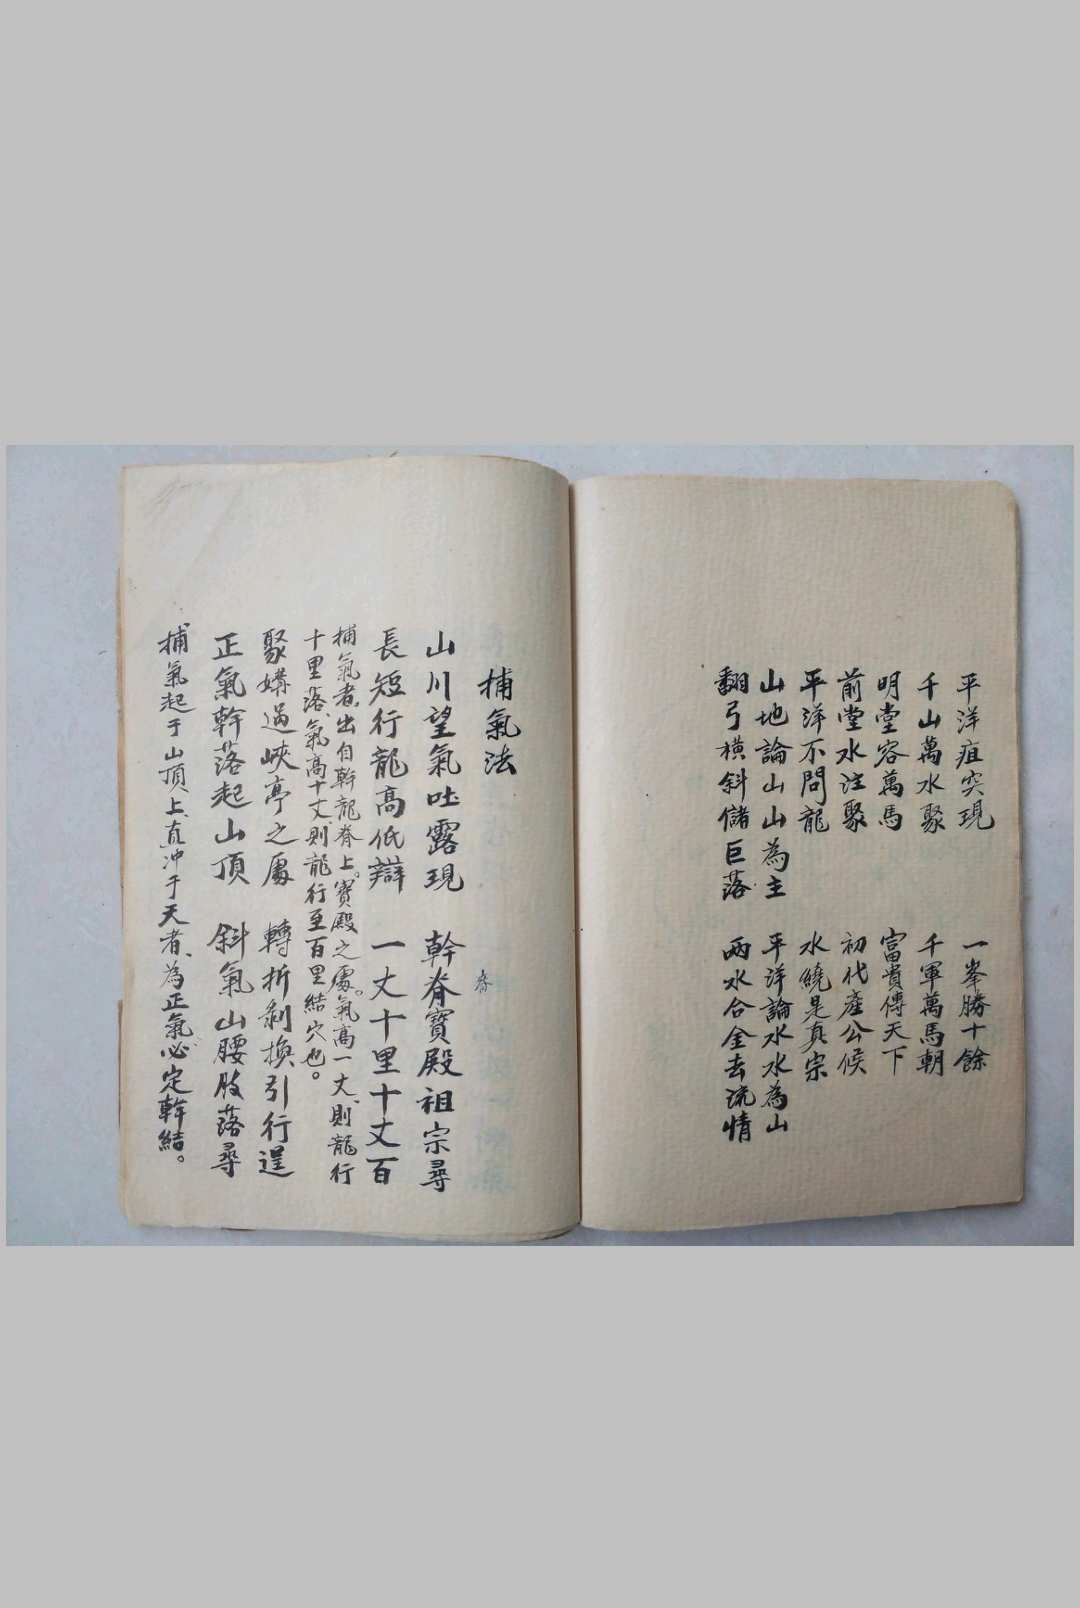 平洋疽突現　一峯勝十餘
千山萬水聚　千軍萬馬朝
明堂容萬馬　富貴傳天下
前堂水注聚　初代產公候
平洋不問龍　水繞是真宗
山地論山山為主　平洋論水水為山
翻弓橫斜儲巨落　兩水合金去流情
捕氣法
山川望氣吐露現　幹脊寶殿祖宗尋
長短行龍高低辯　一丈十里十丈百
捕氣者、出自幹龍脊上。寶殿之處。氣高一丈、則龍行
十里落、氣高十丈、則龍行至百里結穴也。
聚媾過峽亭之處　轉折剝換引行逞
正氣幹落起山頂　斜氣山腰肢落尋
捕氣起于山頂上、直冲于天者、為正氣、必定幹結。